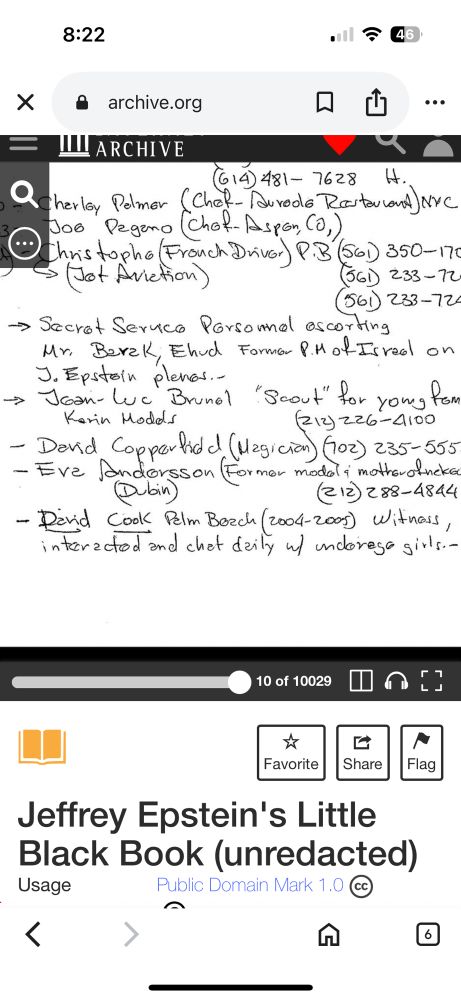 8:22
46
archive.org
ARCHIVE
(614) 481- 7628 H.
Charley Palmer (Chef- Aureole Restaurant) NYC
Joe Pagano (Chef-Aspen, Co,)
Christophe (French Driver) P.B (561) 350-170
→ (Jet Aviation) (561) 233-72
(561) 233-724
→ Secret Service Personnel escorting
Mr. Barak, Ehud Former P.M of Israel on
J. Epstein planes.-
→ Jean-Luc Brunel "Scout" for young fem
Karin Models (212) 226-4100
- David Copperfield (Magician) (702) 235-555
- Eva Andersson (Former model &
(Dubin) (212) 288-4844
- David Cook Palm Beach (2004-2005) Witness,
interacted and chat daily w/ underage girls.-
10 of 10029
Favorite
Share
Flag
Jeffrey Epstein's Little
Black Book (unredacted)
Usage Public Domain Mark 1.0 cc
6